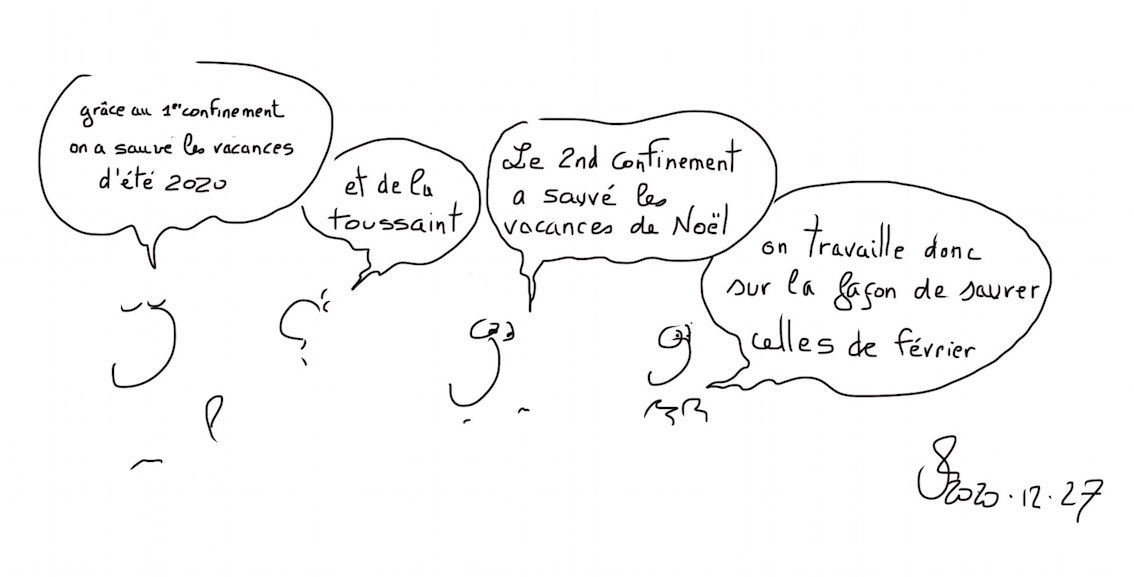 grâce au 1er confinement
on a sauvé les vacances
d'été 2020
et de la
toussaint
Le 2nd confinement
a sauvé les
vacances de Noël
on travaille donc
sur la façon de sauver
celles de février
2020.12.27